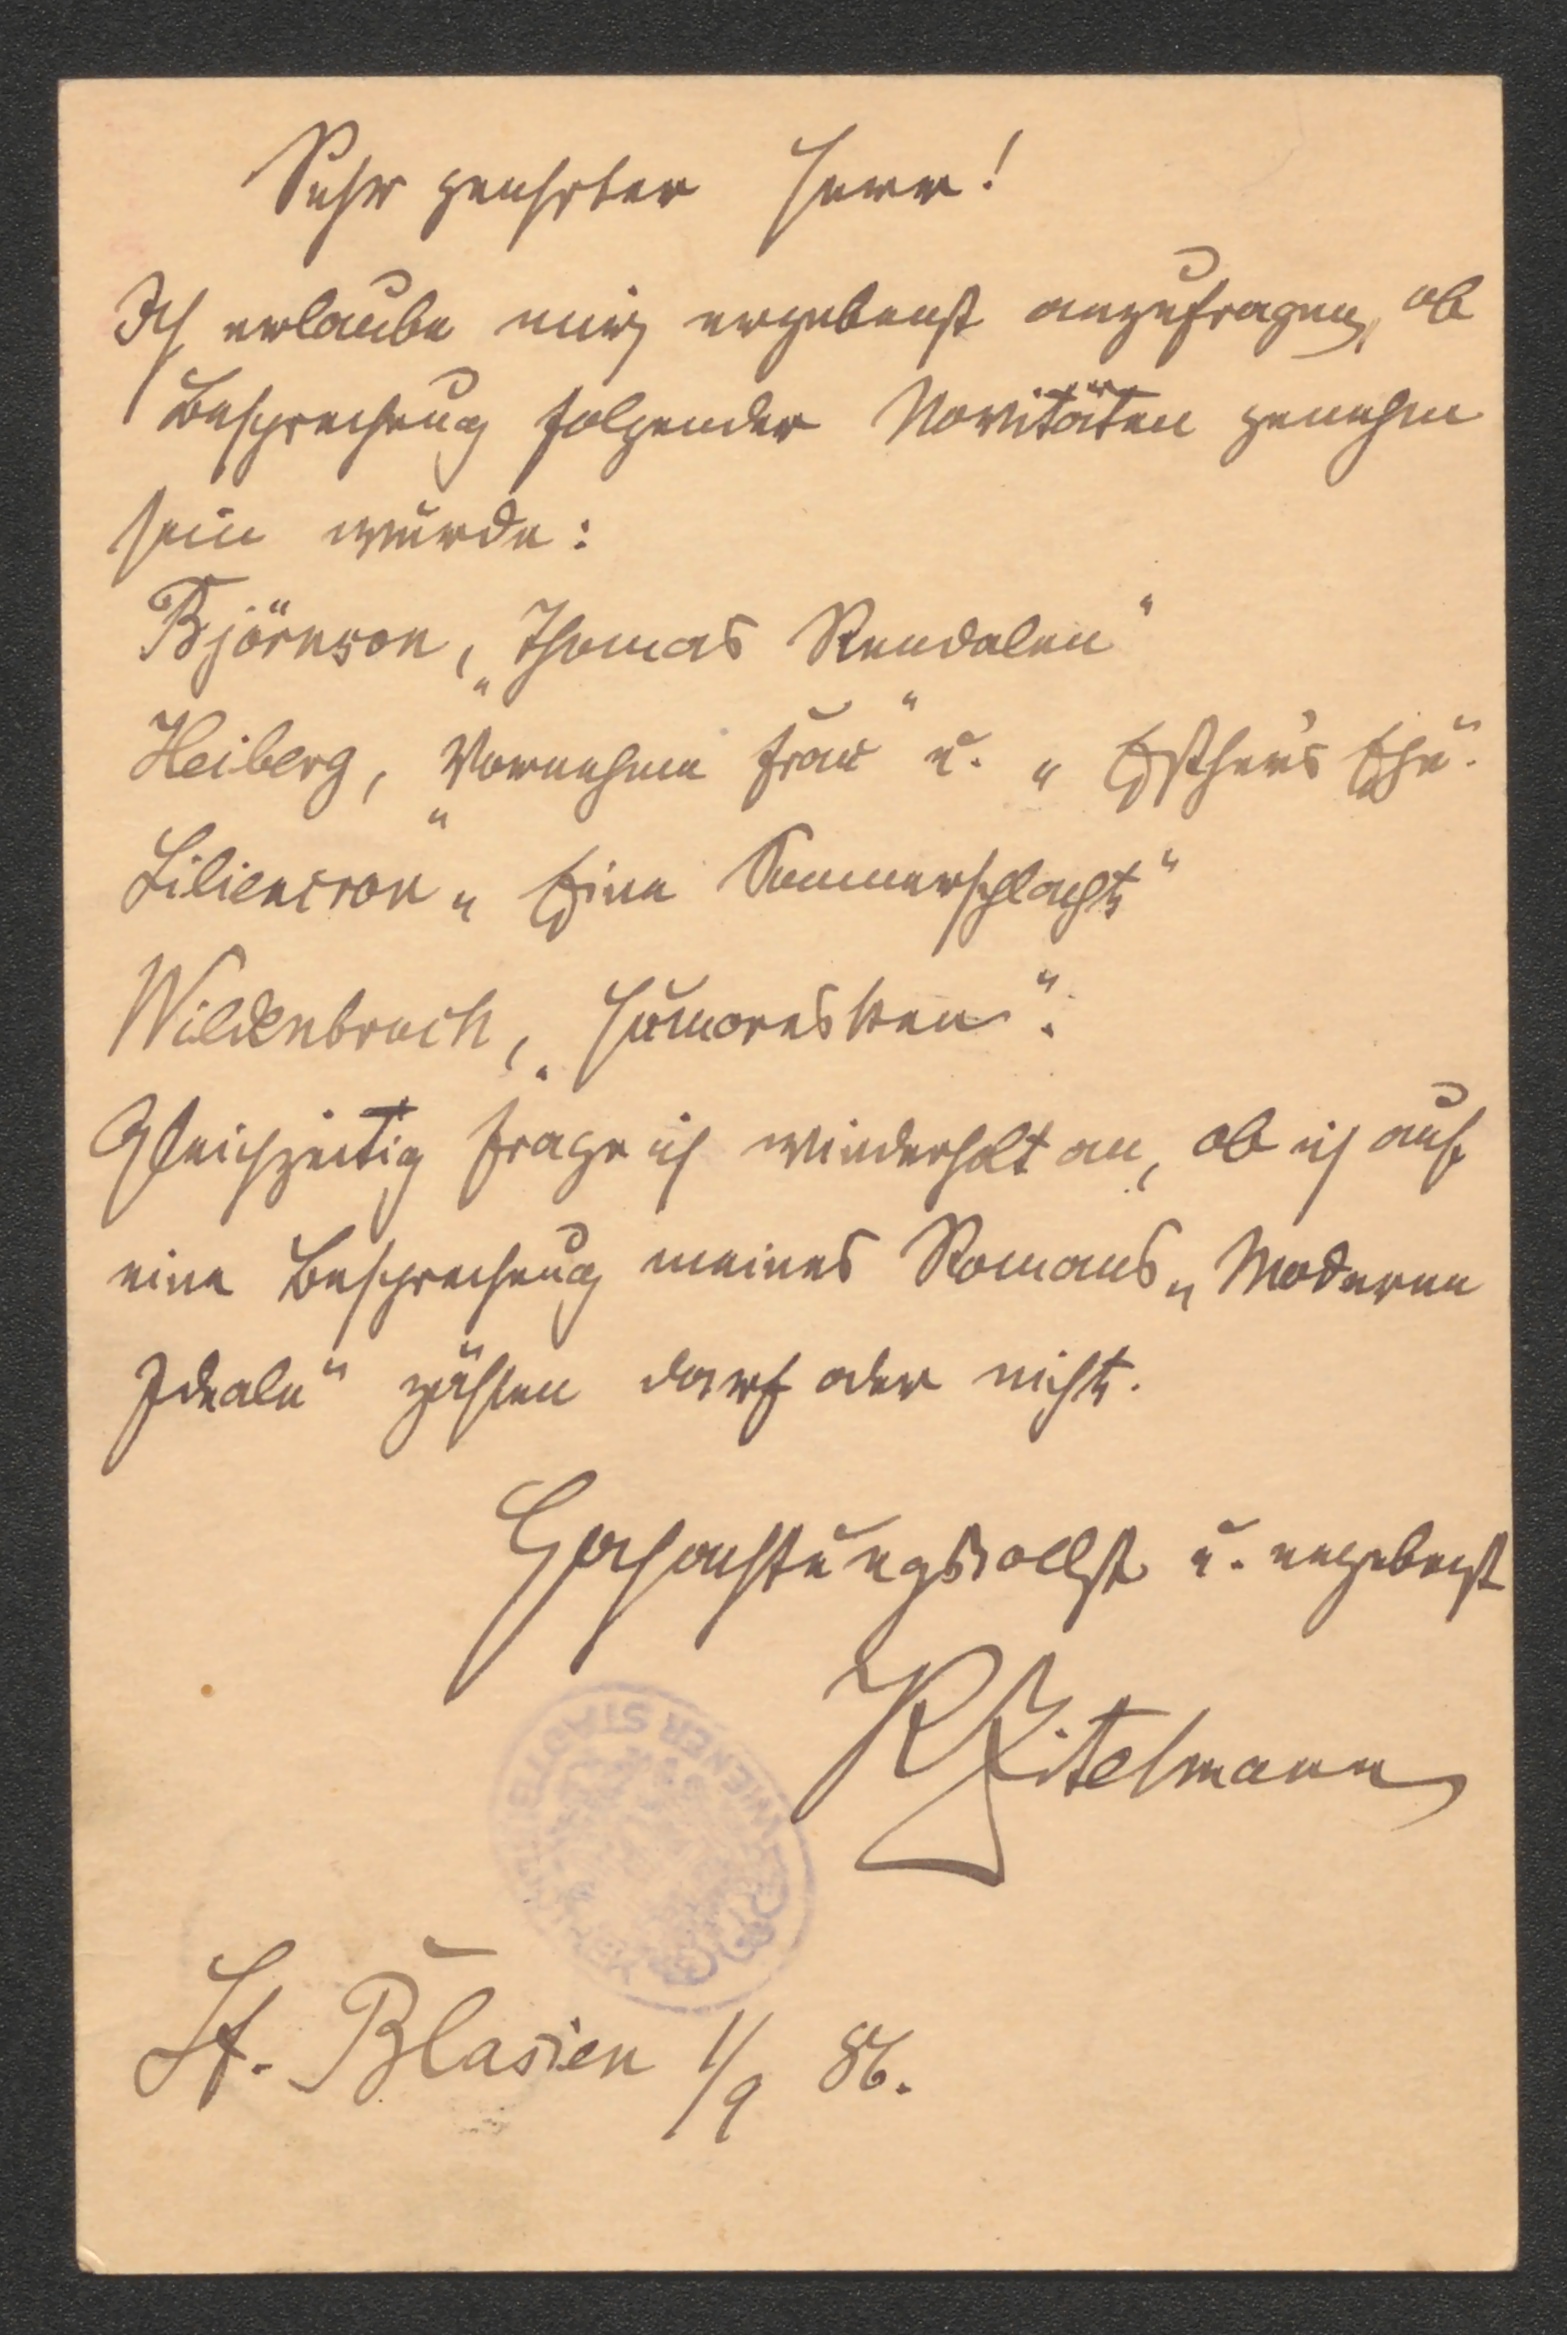 Sehr geehrter Herr!
Ich erlaube mir ergebenst anzufragen, ob
Besprechung folgender Novitäten genehm
sein würde:
Björnson, „Thomas Rendalen“
Heiberg, „Vornehme Frau“ u. „Esther's Ehe“.
Liliencron „Eine Sommerschlacht“
Wildenbruch, „Humoresken“.
Gleichzeitig frage ich wiederholt an, ob ich auf
eine Besprechung meines Romans „Moderne
Ideale“ zählen darf oder nicht.
Hochachtungsvollst u. ergebenst
K Zitelmann
St. Blasien 1/9 86.
WIENER STADTBIBLIOTHEK